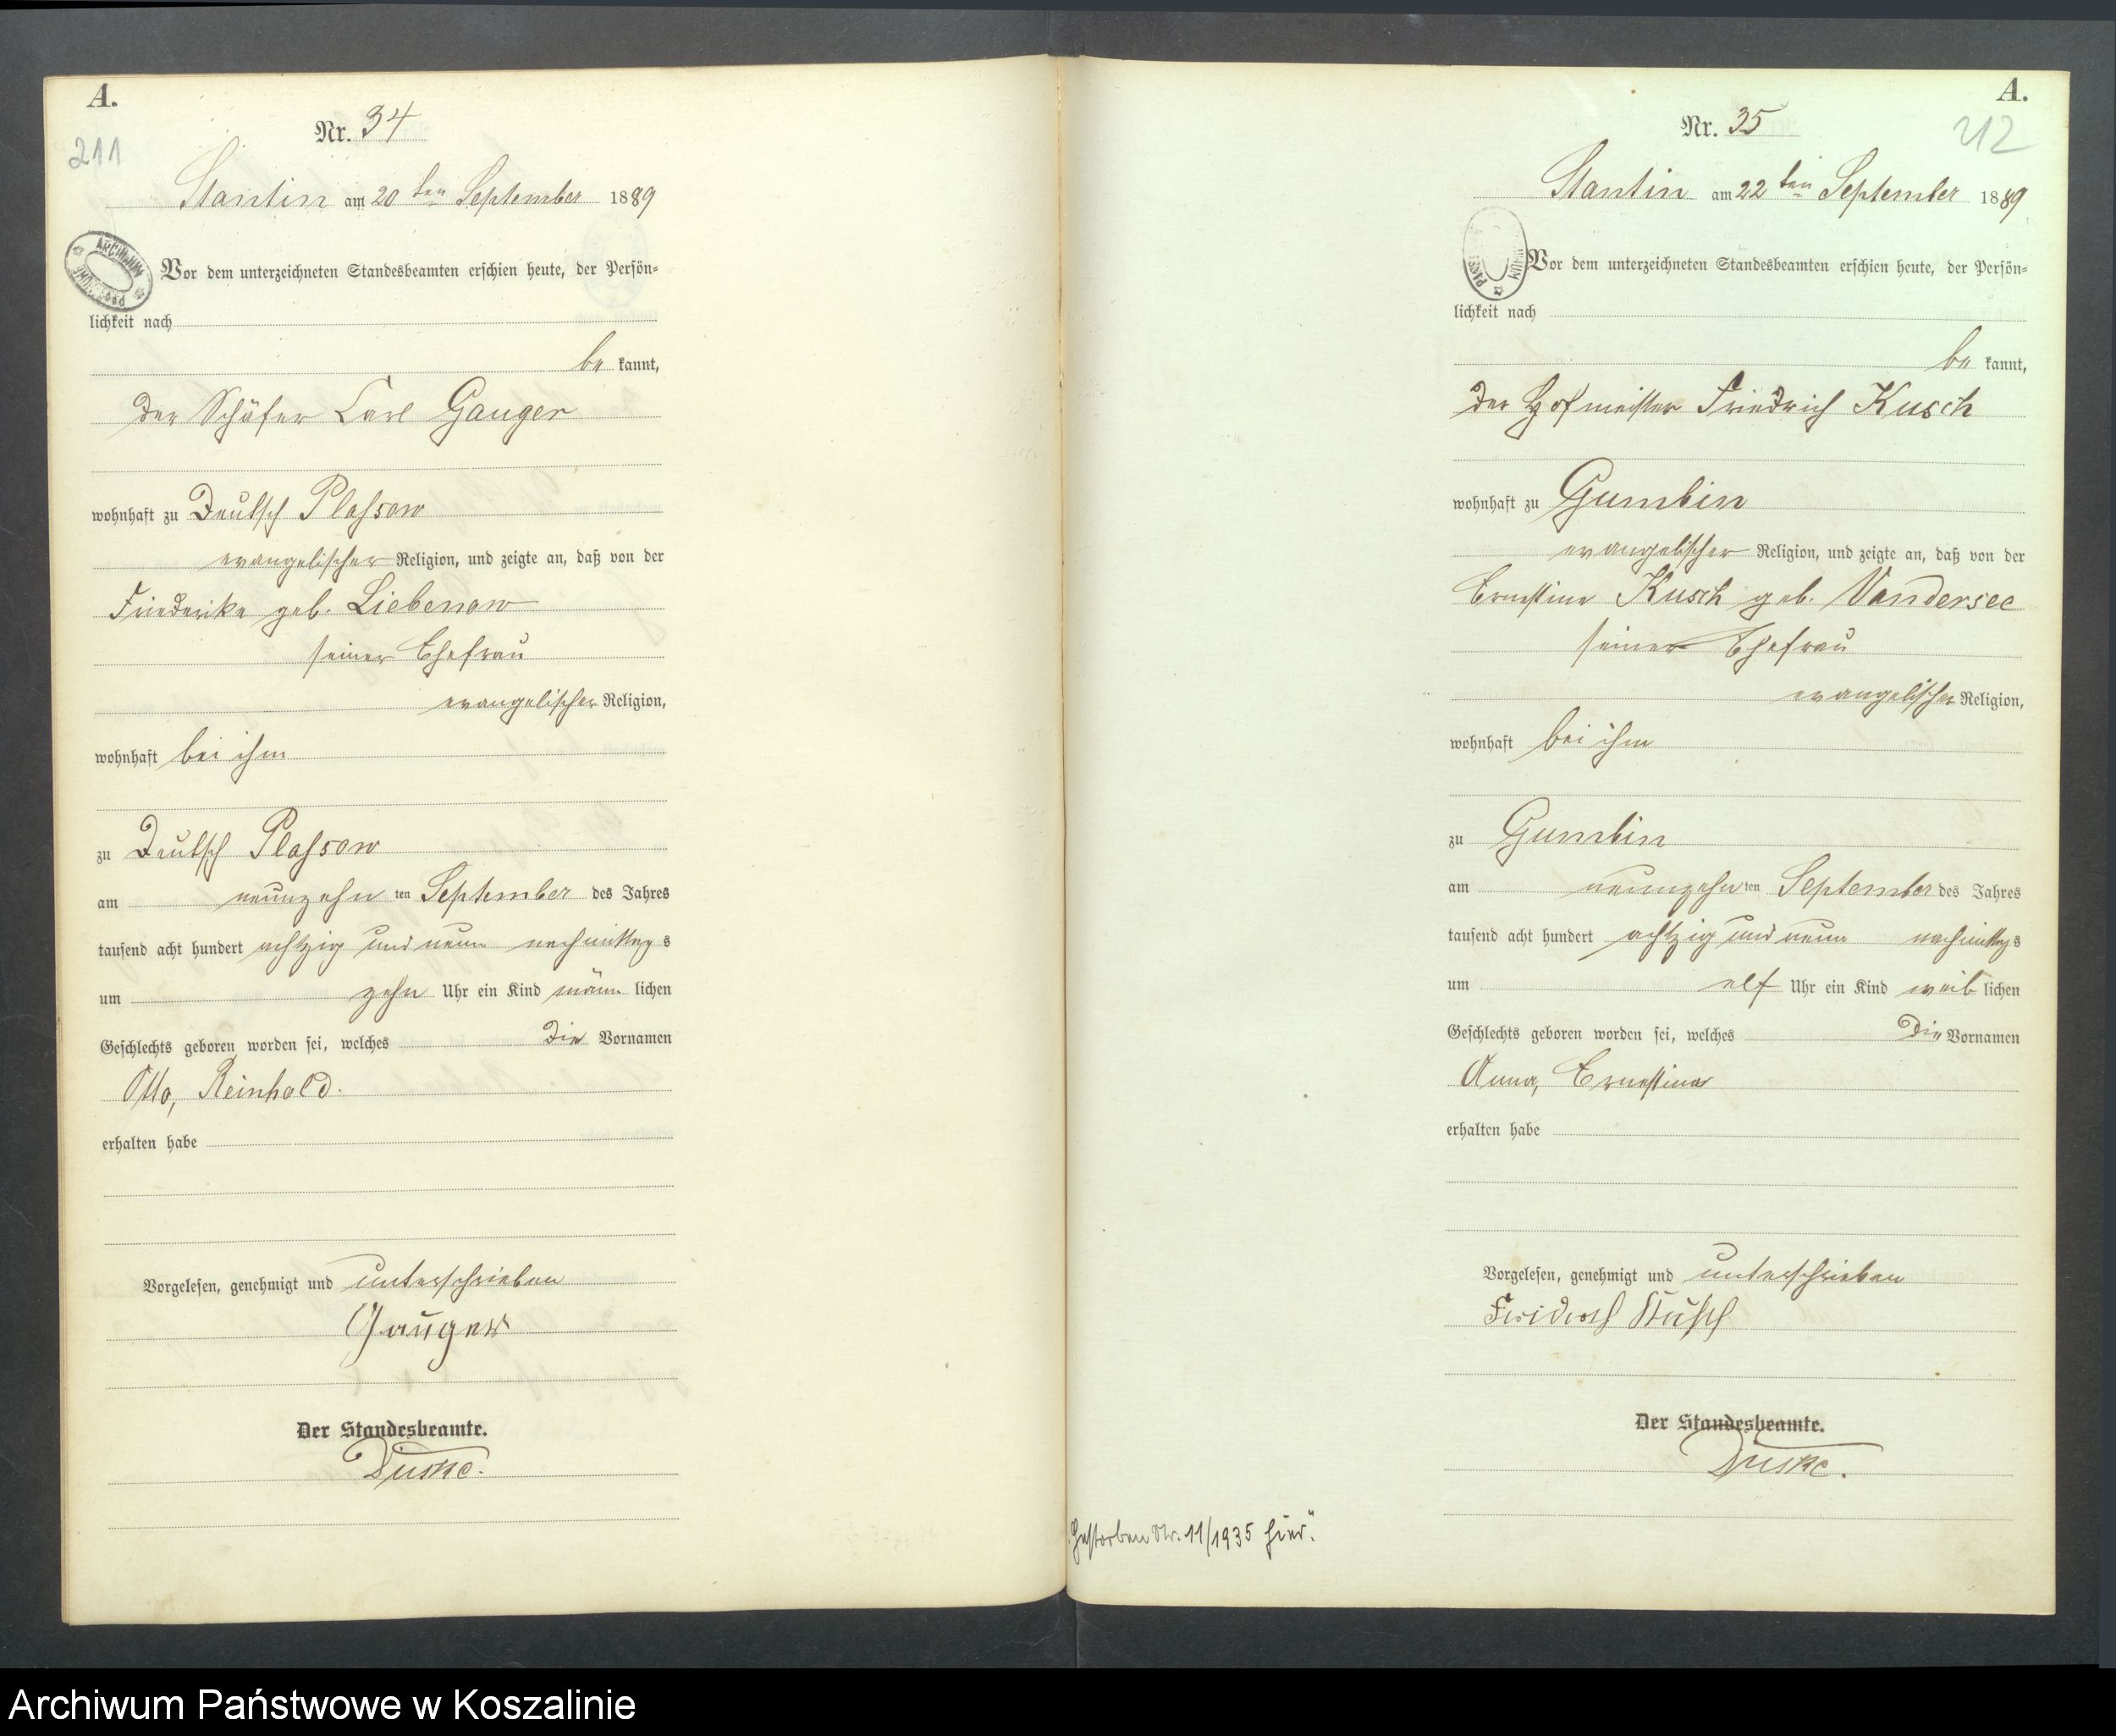 A.
211
Nr. 34
Stantin am 20 ten September 1889
Vor dem unterzeichneten Standesbeamten erschien heute, der Persön=
lichkeit nach
be kannt,
der Schäfer Carl Gauger
wohnhaft zu Deutsch Plassow
evangelischer Religion, und zeigte an, daß von der
Friederike geb. Liebenow
seiner Ehefrau
evangelischer Religion,
wohnhaft bei ihm
zu Deutsch Plassow
am neunzehn ten September des Jahres
tausend acht hundert achtzig und neun nachmittags
um zehn Uhr ein Kind männ lichen
Geschlechts geboren worden sei, welches die Vornamen
Otto, Reinhold.
erhalten habe
Vorgelesen, genehmigt und unterschrieben
Gauger
Der Standesbeamte.
A.
212
Nr. 35
Stantin am 22 ten September 1889
Vor dem unterzeichneten Standesbeamten erschien heute, der Persön=
lichkeit nach
be kannt,
der Hofmeister Friedrich Kusch
wohnhaft zu Gumbin
evangelischer Religion, und zeigte an, daß von der
Ernestine Kusch geb. Vandersee
seiner Ehefrau
evangelischer Religion,
wohnhaft bei ihm
zu Gumbin
am neunzehn ten September des Jahres
tausend acht hundert achtzig und neun nachmittags
um elf Uhr ein Kind weib lichen
Geschlechts geboren worden sei, welches die Vornamen
Anna, Ernestine
erhalten habe
Vorgelesen, genehmigt und unterschrieben
Kusch
Der Standesbeamte.
Gestorben Nr. 11/1935 hier."
Archiwum Państwowe w Koszalinie